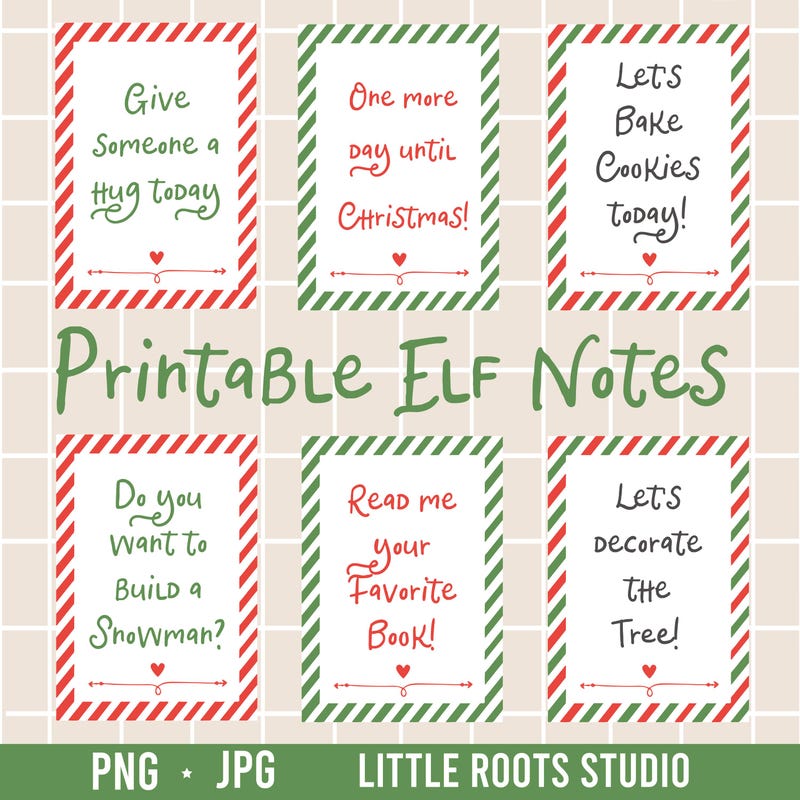 Give
someone a
Hug today
One more
day until
Christmas!
Let's
Bake
Cookies
today!
Printable Elf Notes
Do you
want to
Build a
Snowman?
Read me
your
Favorite
Book!
Let's
decorate
the
Tree!
PNG ★ JPG LITTLE ROOTS STUDIO